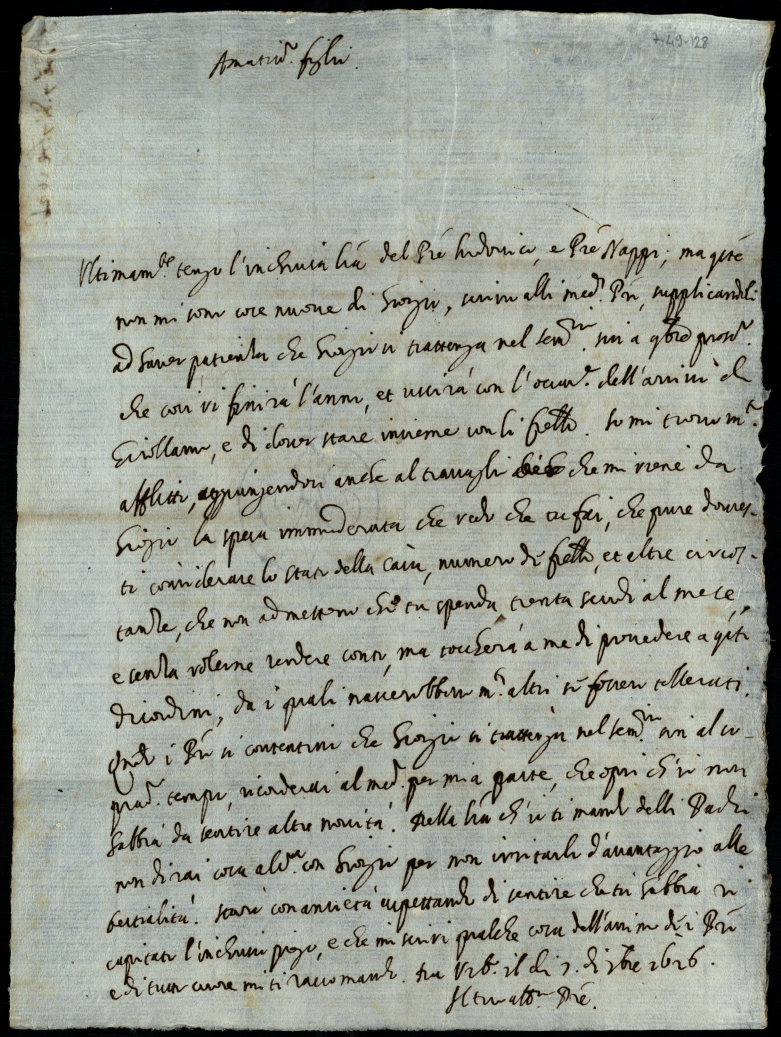 7-49-128
Amatiss.º figlio.
Ultimam.te tengo l'inchiusa l'ra del P're Ludovico, e P're Nappi; ma q'sté
non mi sono cose nuove di Giorgio, scrivo alli med.i P'ri, supplicandoli
ad haver patienza che Giorgio si trattenga nel sem.rio sin a 9bre pross.º
che così si finirà l'anno, et uscirà con l'occas.e dell'arrivo di
Girollamo, e di dover stare insieme con li fr'elli. Io mi trovo m.to
afflitto, aggiungendosi anche al travaglio che mi viene da
Giorgio la spesa immoderata che vedo che tu fai, che pure dovres-
ti considerare lo stato della casa, numero di fr'elli, et altre circos-
tanze, che non admettono che tu spenda trenta scudi al mese,
e senza volerne rendere conto, ma toccherà a me di provedere a q'sti
disordini, da i quali nascerebbero m.ti altri se fossero tollerati.
Q'ndo i P'ri si contentino che Giorgio si trattenga nel sem.rio sin al su-
prad.º tempo, ricorderai al med.º per mia parte, che opri ch'io non
habbia da sentire altre novità. Della l'ra ch'io ti mando delli Padri
non dirai cosa alc.na con Giorgio per non irritarlo d'avantaggio alle
bestialità. starò con anxietà aspettando di sentire che tu habbia ri
capitato l'inchiuso piego, e che mi scrivi qualche cosa dell'animo de i P'ri
e di tutto cuore mi ti raccomando. Da Urb.º il di 7. di 7bre 1626.
Il tuo aff.mo P're.